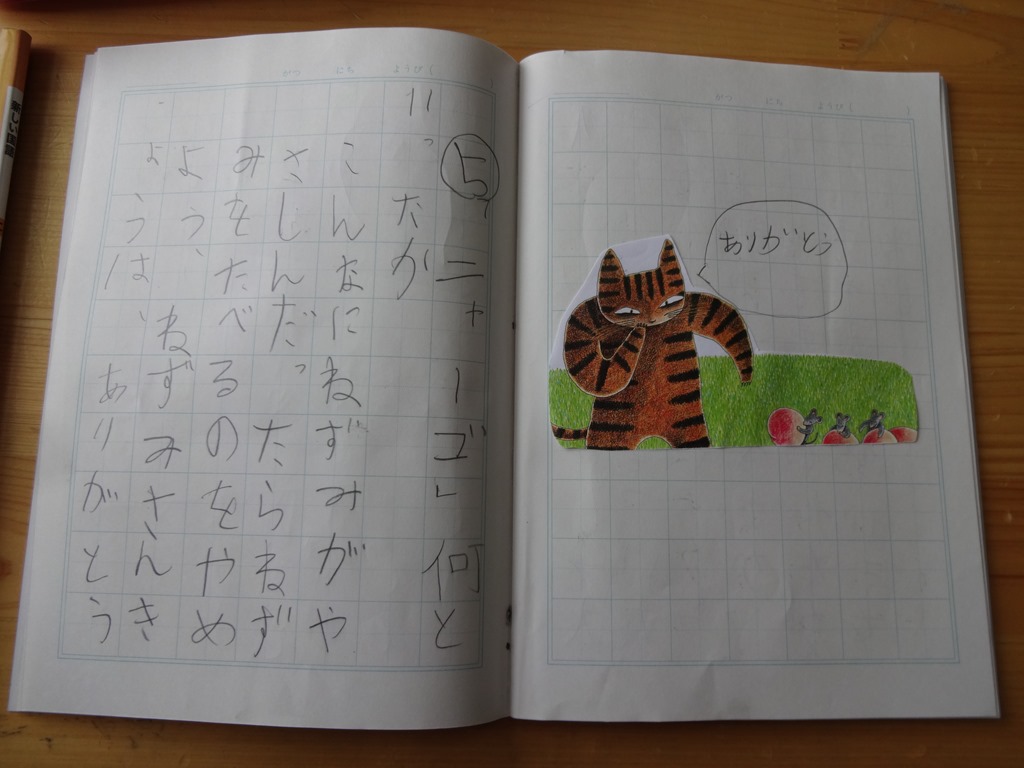 がつ　にち　ようび
⑤「ニャーゴ」何と
いったか
こんなにねずみがや
さしんだったらねず
みをたべるのをやめ
よう、ねずみさんき
ょうは、ありがとう
がつ　にち　ようび
ありがとう